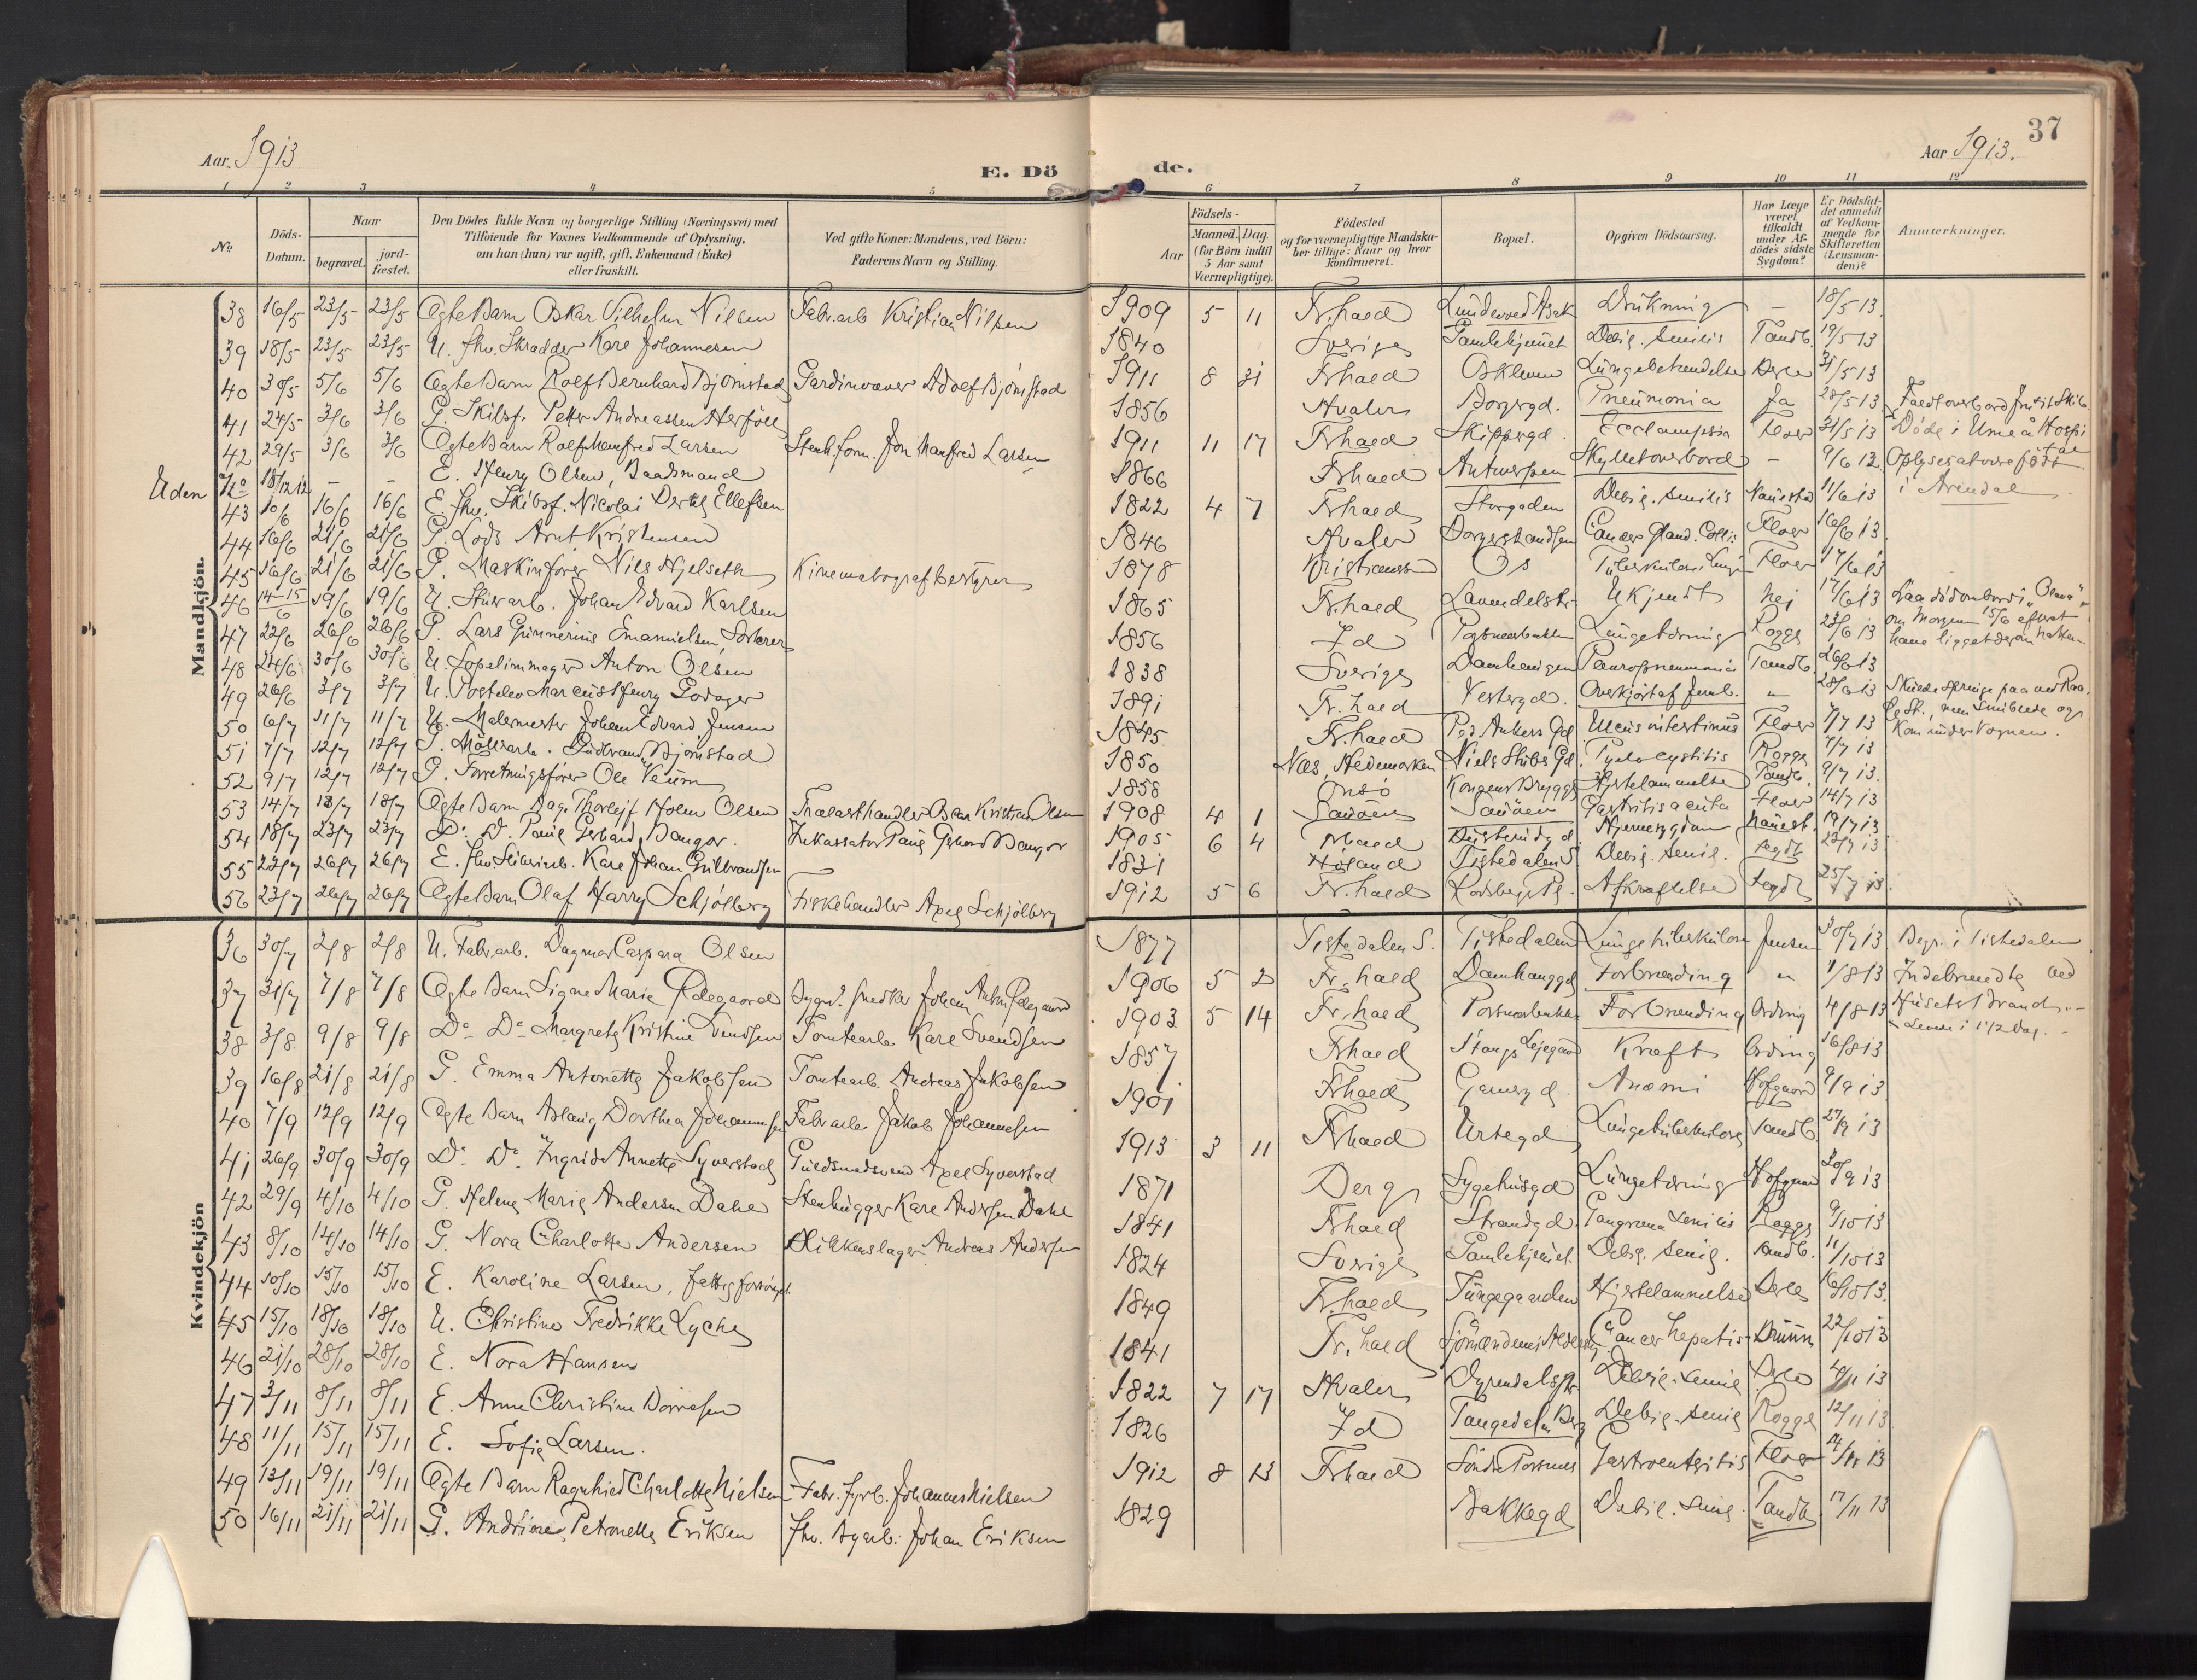 37
Aar. 1913
E. Dö
de.
Aar 1913.
1 2 3 4 5 6 7 8 9 10 11 12
No
Döds-Datum.
Naar
begravet.
jord-fæstet.
Den Dödes fulde Navn og borgerlige Stilling (Næringsvei) med
Tilföiende for Voxnes Vedkommende af Oplysning,
om han (hun) var ugift, gift, Enkemand (Enke)
eller fraskilt.
Ved gifte Koner: Mandens, ved Börn:
Faderens Navn og Stilling.
Aar
Födsels-
Maaned. Dag.
(for Börn indtil
5 Aar samt
Værnepligtige).
Födested
og for værnepligtige Mandskaber tillige: Naar og hvor
konfirmeret.
Bopæl.
Opgiven Dödsaarsag.
Har Læge
været
tilkaldt
under Afdödes sidste
Sygdom?
Er Dödsfaldet anmeldt
af Vedkommende for
Skifteretten
(Lensmanden)?
Anmærkninger.
Mandkjön.
38 16/5 23/5 23/5 Ægte Barn Oskar Vilhelm Nilsen Fabr.arb Kristian Nilsen 1909 5 11 Fr.hald Druknning – 18/5 13.
39 18/5 23/5 23/5 U. fhv. Skrædder Karl Johannesen 1840 Sverige Gamlehjemmet Debil. senilis Tandb. 19/5 13
40 30/5 5/6 5/6 Ægte Barn Rolf Bernhard Bjørnstad Gardinvæver Adolf Bjørnstad 1911 8 31 Frhald Oskleven Lungebetændelse 31/5 13
41 24/5 3/6 3/6 G. Skibsf. Petter Andreassen Herføll 1856 Hvaler Borgergd. Pneumonia Ja 28/5 13
42 29/5 3/6 3/6 Ægte Barn Rolf Manfred Larsen Stenh.form. Jon Manfred Larsen 1911 11 17 Frhald Skippergd. Ecclampsia Floor 31/5 13
Uden No 18/12 12 – – E. Henry Olsen, Baadsmand 1866 Frhald Antwerpen Skyllet overbord – 9/6 13.
43 10/6 16/6 16/6 E. fhv. Skibsf. Nicolai Bertel Ellefsen 1822 4 7 Frhald Storgaden Debil. senilis 11/6 13
44 16/6 21/6 21/6 G. Lods Arnt Kristensen 1846 Hvaler Cancer Gland. Collis Floor 16/6 13.
45 16/6 21/6 21/6 G. Maskinfører Niels Hjelseth Kinematografbestyrer 1878 Os Floor 17/6 13
46 14-15/6 19/6 19/6 U. Stuvarb. Johan Edvard Karlsen 1865 Fr.hald Lavendelstr. Ukjendt Nei 17/6 13
47 22/6 26/6 26/6 G. Lars Gunnerius Emanuelsen, Sorterer 1856 Id Lungetæring Rogge 23/6 13
48 24/6 30/6 30/6 U. Anton Olsen 1838 Sverige Pleuropneumonia Tandb. 26/6 13
49 26/6 3/7 3/7 U. Postelev Marcus Henry Godager 1891 Fr.hald Vestergd. Overkjørt af Jernb. " 28/6 13
50 6/7 11/7 11/7 U. Malermester Johan Edvard Jensen 1845 Fr.hald Ped. Ankers Gd. Ulcus intestinus Floor 7/7 13
51 7/7 12/7 12/7 G. Möllearb. Gudbrand Bjørnstad 1850 Næs, Hedemarken Niels Stubs Gd. Pyelocystitis Rogge 7/7 13
52 9/7 12/7 12/7 G. Forretningsfører Ole Veum 1858 Onsö Kongens Brygge Hjertelammelse Tandb. 9/7 13.
53 14/7 18/7 18/7 Ægte Barn Dag Thorleif Holm Olsen Trælasthandler Kristian Olsen 1908 4 1 Sauöen Sauöen Gastritis acuta Floor 14/7 13
54 18/7 23/7 23/7 Do Do Paul Gerhard Bangor. Inkassator Paul Gerhard Bangor 1905 6 4 Frhald Hjernesygdom 19/7 13
55 22/7 26/7 26/7 E. fhv. Karl Johan Gulbrandsen 1831 Høland Tistedalen S. Debil. senil. 23/7 13
56 23/7 26/7 26/7 Ægte Barn Olaf Harry Schjølberg Fiskehandler Axel Schjølberg 1912 5 6 Fr.hald Afkræftelse 25/7 13.
Faldt overbord fra sit Skib.
Døde i Umeå Hospital
Oplyses at være født
i Arendal
Laa død ombord i "Olava"
om Morgen 15/6 efterat
have ligget der om Natten
Skulde springe paa ved
St., men snublede og
kom under Vognen.
Kvindekjön
36 30/7 2/8 2/8 U. Fabr.arb. Dagmar Caspara Olsen 1877 Tistedalen S. Tistedalen Lungetuberkulose Jensen 30/7 13 Begr. i Tistedalen
37 31/7 7/8 7/8 Ægte Barn Signe Marie Ødegaard Snedker Johan Anton Ødegaard 1906 5 2 Fr.hald Damhauggd Forbrænding " 1/8 13 Indebrændte ved
38 3/8 9/8 9/8 Do Do Margrete Kristine Svendsen Tomtearb. Karl Svendsen 1903 5 14 Fr.hald Forbrænding Ording 4/8 13 Husets Brand. –
Levede i 1 1/2 Dag. –
39 16/8 21/8 21/8 G. Emma Antonette Jakobsen Tomtearb. Andreas Jakobsen 1857 Frhald Stangs Leiegaard Kræft Ording 16/8 13
40 7/9 12/9 12/9 Ægte Barn Aslaug Dorthea Johannesen Fabr.arb. Jakob Johannesen 1901 Frhald Anæmi Hofgaard 9/9 13
41 26/9 30/9 30/9 Do Do Ingrid Annette Syverstad Guldsmedsvend Axel Syverstad 1913 3 11 Frhald Urtegd Lungetuberkulose Tandb 27/9 13
42 29/9 4/10 4/10 G. Helene Marie Andersen Dahl Stenhugger Karl Andersen Dahl 1871 Berg Sygehusgd Lungetæring Hofgaard 30/9 13
43 8/10 14/10 14/10 G. Nora Charlotte Andersen Blikkenslager Andreas Andersen 1841 Frhald Strandgd. Gangræna senilis Rogge 9/10 13
44 10/10 15/10 15/10 E. Karoline Larsen, fattigforsörget 1824 Sverige Gamlehjemmet Debil. senil. Tandb. 11/10 13
45 15/10 18/10 18/10 U. Christine Fredrikke Lyche 1849 Fr.hald Tungegaarden Hjertelammelse 16/10 13.
46 21/10 28/10 28/10 E. Nora Hansen 1841 Fr.hald Cancer hepatis Brunn 22/10 13
47 3/11 8/11 8/11 E. Anne Christine 1822 7 17 Hvaler Dyrendalsstr Debil. senil 4/11 13
48 11/11 15/11 15/11 E. Sofie Larsen. 1826 Id Tangedalen Berg Debil. senil Rogge 12/11 13
49 13/11 19/11 19/11 Ægte Barn Ragnhild Charlotte Nielsen Fabr. fyrb. Johannes Nielsen 1912 8 13 Frhald Gastroenteritis Floor 14/11 13
50 16/11 21/11 21/11 G. Andrine Petronelle Eriksen fhv. Johan Eriksen 1829 Bakkegd Debil. senil. Tandb 17/11 13